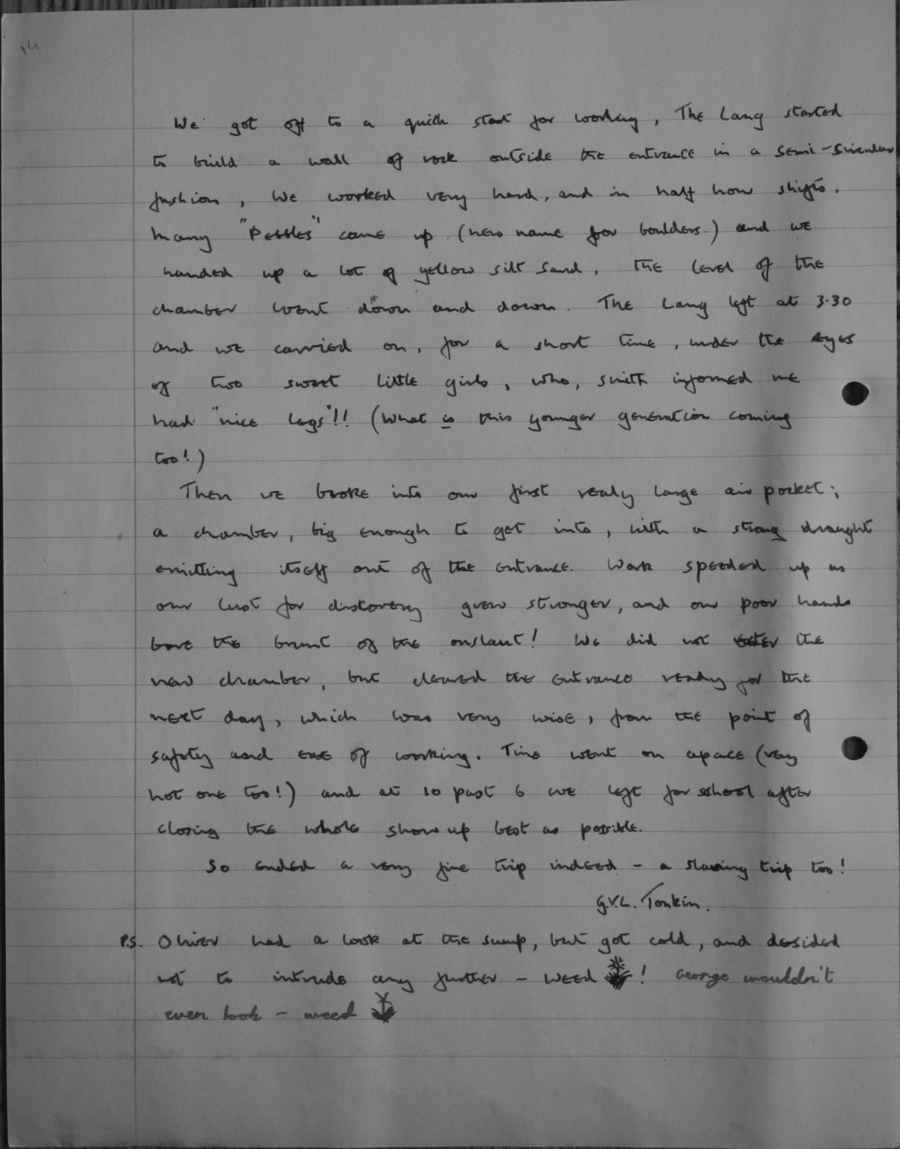 14
We got off to a quick start for working, The Lang started
to build a wall of rock outside the entrance in a semi-sircular
fashion, We worked very hard, and in half hour shifts.
Many "Pebbles" came up (new name for boulders) and we
handed up a lot of yellow silt sand. The level of the
chamber went down and down. The Lang left at 3.30
and we carried on, for a short time, under the eyes
of two sweet little girls, who, Smith informed me
had "nice legs"!! (What is this younger generation coming
too!)
Then we broke into our first really large air pocket;
a chamber, big enough to get into, with a strong draught
emitting itself out of the entrance. Work speeded up as
our lust for discovery grew stronger, and our poor hands
bore the brunt of the onslaut! We did not enter the
new chamber, but cleared the entrance ready for the
next day, which was very wise, from the point of
safety and ease of working. Time went on apace (very
hot one too!) and at 10 past 6 we left for school after
closing the whole show up best as possible.
So ended a very fine trip indeed - a slaving trip too!
G.V.L. Tonkin.
P.S. Oliver had a look at the sump, but got cold, and desided
not to intrude any further - weed! George wouldn't
even look - weed